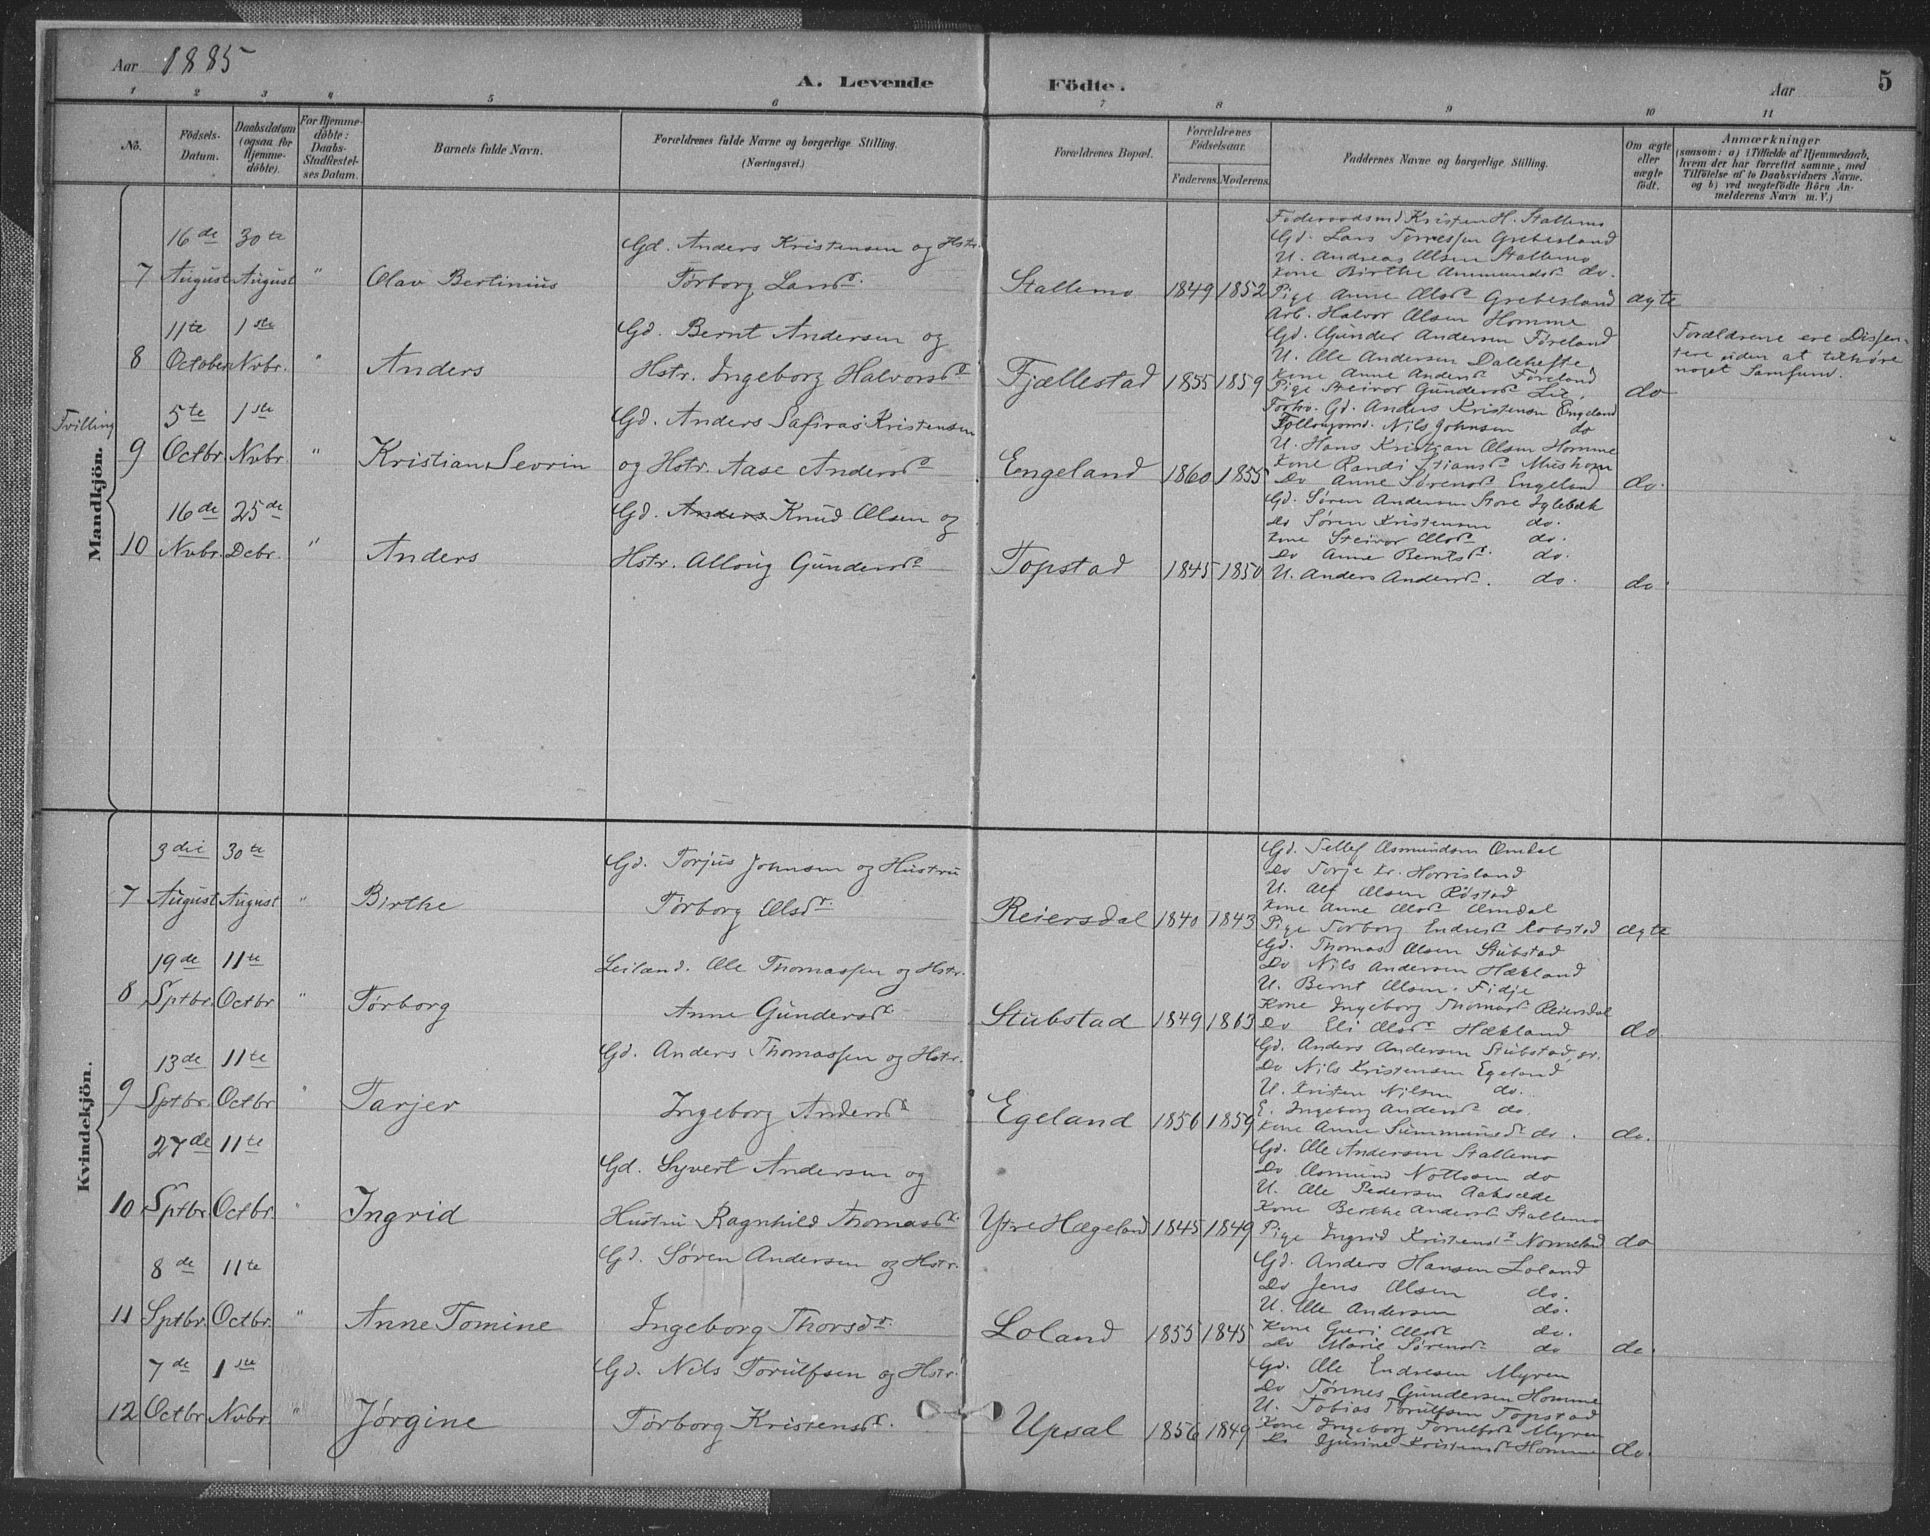 Aar 1885
A. Levende Födte.
Aar
5
1 2 3 4 5 6 7 8 9 10 11
No. Födsels-Datum. Daabsdatum (ogsaa for Hjemme-döbte). For Hjemme-döbte: Daabs-Stadfæstel-ses Datum. Barnets fulde Navn. Forældrenes fulde Navne og borgerlige Stilling. (Næringsvei.) Forældrenes Bopæl. Forældrenes Födselsaar. Faderens. Moderens. Faddernes Navne og borgerlige Stilling. Om ægte eller uægte födt. Anmærkninger
(saasom: a) i Tilfælde af Hjemmedaab,
hvem der har forrettet samme, med
Tilföielse af to Daabsvidners Navne.
og b) ved uægtefödte Börn An-
melderens Navn m. V.)
Mandkjön.
7 16de August 30te August " Olav Bertinius
Gd. Anders Kristensen og Hstr.
Tørborg Larsd.
Stallemo 1849 1852
Föderaadsmd Kristen H. Stallemo
Gd. Lars Tørresen Grebesland
U. Andreas Olsen Stallemo
Kone Birthe Ammundsd. do.
Pige Anne Olsd. Grebesland
ægte
8 11te October 1ste Nvbr. " Anders
Gd. Bernt Andersen og
Hstr. Ingeborg Halvorsd.
Fjællestad 1855 1859
Arb. Halvor Olsen Homme
Gd. Gunder Andersen Föreland
U. Ole Andersen Dalehefte
Kone Anne Andersd. Föreland
Pige Steivor Gundersd. Lie,
do
Forældrene ere Dissen-
tere uden at tilhøre
noget Samfund.
Tvilling
9 5te Octbr. 1ste Nvbr. " Kristian Sevrin
Gd. Anders Safiras Kristensen
og Hstr. Aase Andersd.
Engeland 1860 1855
Forhv. Gd. Anders Kristensen Engeland
Nils Johnsen do
U. Hans Kristian Olsen Homme
Kone Randi Stiansd.
Do Anne Sørensd. Engeland
do.
10 16de Nvbr. 25de Debr. " Anders
Gd. Anders Knud Olsen og
Hstr. Alloug Gundersd.
Topstad 1845 1850
Gd. Søren Andersen Store Iglebæk
Do Søren Kristensen do.
Kone Steivor Olsd. do.
Do Anne Berntsd. do.
U. Anders Andersd. do.
do
Kvindekjön.
7 3die August 30te August " Birthe
Gd. Torjus Johnsen og Hustru
Tørborg Olsd.
Reiersdal 1840 1843
Gd. Tellef Asmundsen Omdal
Do Torje Kr. Horrisland
U. Alf Olsen Røstad
Kone Anne Olsd. Omdal
Pige Torborg Endresd. Robstad
ægte
8 19de Sptbr. 11te Octbr " Tørborg
Leiland. Ole Thomassen og Hstr.
Anne Gundersd.
Stubstad 1849 1863
Gd. Thomas Olsen Stubstad
Do Nils Andersen Hækland
U. Bernt Olsen Fidje
Kone Ingeborg Thomasd. Reiersdal
Do Eli Olsd. Hækland
do
9 13de Sptbr. 11te Octbr " Tarjer
Gd. Anders Thomassen og Hstr.
Ingeborg Andersd.
Egeland 1856 1859
Gd. Anders Andersen Stubstad, sr.
Do Nils Kristensen Egeland
U. Kristen Nilsen do.
E. Ingeborg Andersd. do.
Kone Anne do.
do.
10 27de Sptbr. 11te Octbr. " Ingrid
Gd. Syvert Andersen og
Hustru Ragnhild Thomasd.
Ytre Hægeland 1845 1849
Gd. Ole Andersen Stallemo
Do Osmund Nottosen do
U. Ole Pedersen
Kone Berthe Andersd. Stallemo
Pige Ingrid Kristensd.
do
11 8de Sptbr. 11te Octbr. " Anne Tomine
Gd. Søren Andersen og Hstr.
Ingeborg Thorsd.
Loland 1855 1845
Gd. Anders Hansen Loland
Do Jens Olsen do.
U. Ole Andersen do.
Kone Guri Olsd. do.
Do Marie Sørensd. do
do.
12 7de Octbr. 1ste Nvbr. " Jørgine
Gd. Nils Torulfsen og Hstr.
Tørborg Kristensd.
Upsal 1856 1849
Gd. Ole Endresen Myren
Do Tønnes Gundersen Homme
U. Tobias Torulfsen Topstad
Kone Ingeborg Torulfsd. Myren
Do Gusine Kristensd. Homme
do.